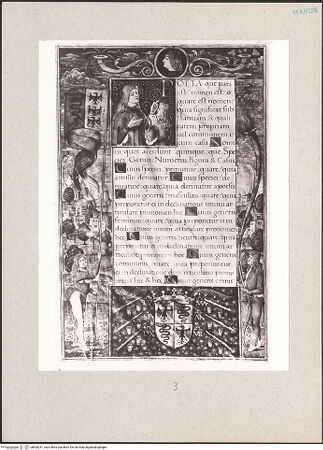 MANUS
OETA que pars
est? nomen est: q
quare est nomen:
quia significat sub
stantiam & quali
tatem propriam
uel communem
cum casu. Nomi
ni quot accidunt quinque que Spe
cies Genus Numerus figura & Casus
Cuius speciei primitiue quare quia
a nullo deriuatur Cuius speciei de
riuatiue quare quia deriuatur a poesis
Cuius generis masculini quare quia
preponitur ei in declinatione unum ar
ticulare pronomen hic Cuius generis
feminini quare quia preponitur ei in
declinatione unum articulare pronomen
hec Cuius generis neutri quare quia
preponitur ei in declinatione unum ar
ticulare pronomen hoc Cuius generis
communis quare quia preponuntur
ei in declinatione duo articularia prono
mina hic & hec Cuius generis omnis
3